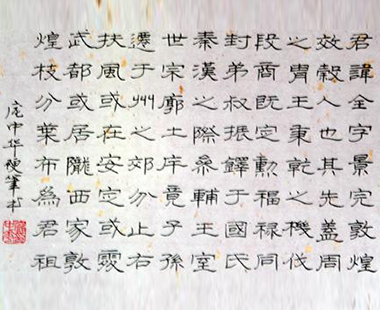 君諱全字景完敦煌
效穀人也其先蓋周
之胄王秉乾之機伐
殷商既定勲福禄同
封弟叔振鐸于國氏
秦漢之際參輔王室
世宗廓土斥竟子孫
遷于州之郊分止右
扶風或在安定或處
武都或居隴西家敦
煌枝分葉布為君祖
庞中华硬筆书